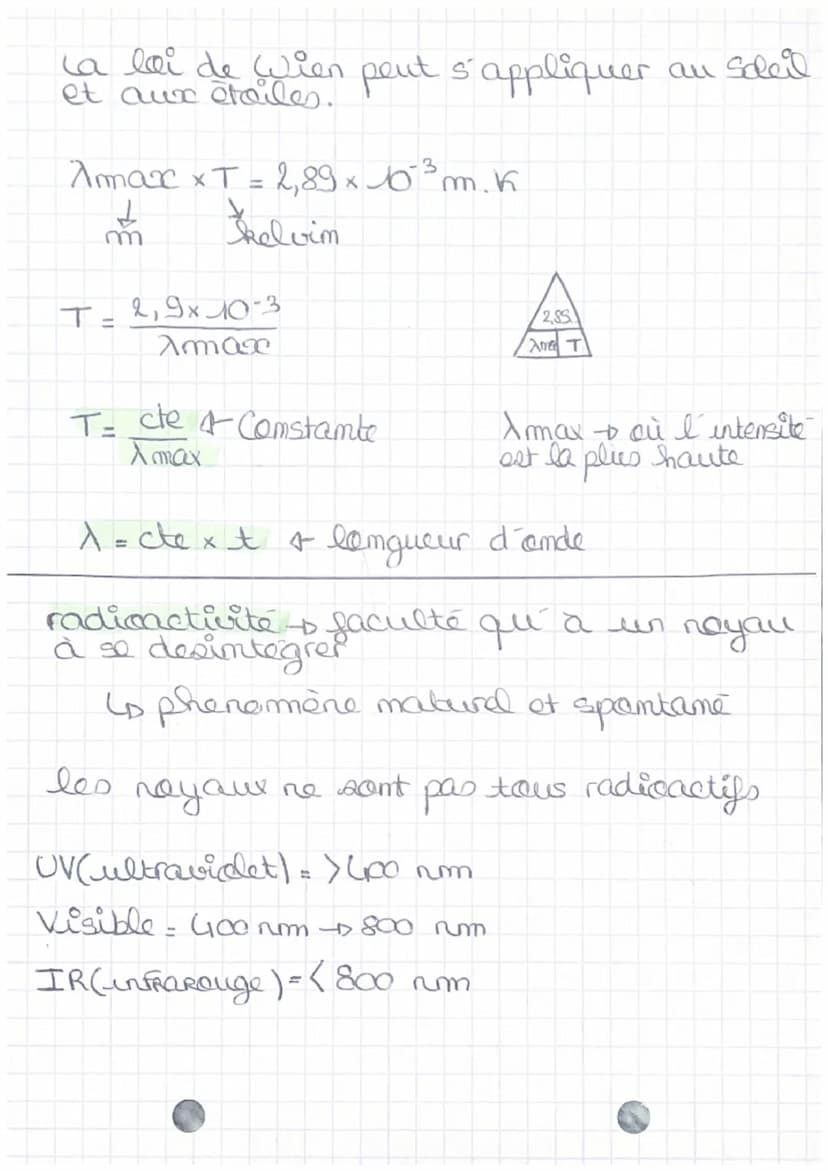 La loi de Wien peut s'appliquer au Soleil
et aux étoiles.
λmax × T = 2,89 × 10⁻³ m.K
↓ ↘
m kelvin
T = 2,9 × 10⁻³
λmax
2,89
λmax T
T = cte ← Constante
λmax
λmax → où l'intensité
est la plus haute
λ = cte × t ← longueur d'onde
radioactivité → faculté qu'a un noyau
à se desintégrer
↳ phenomène naturel et spontané
les noyaux ne sont pas tous radioactifs
UV(ultraviolet) = > 400 nm
Visible = 400 nm → 800 nm
IR(infrarouge) = < 800 nm